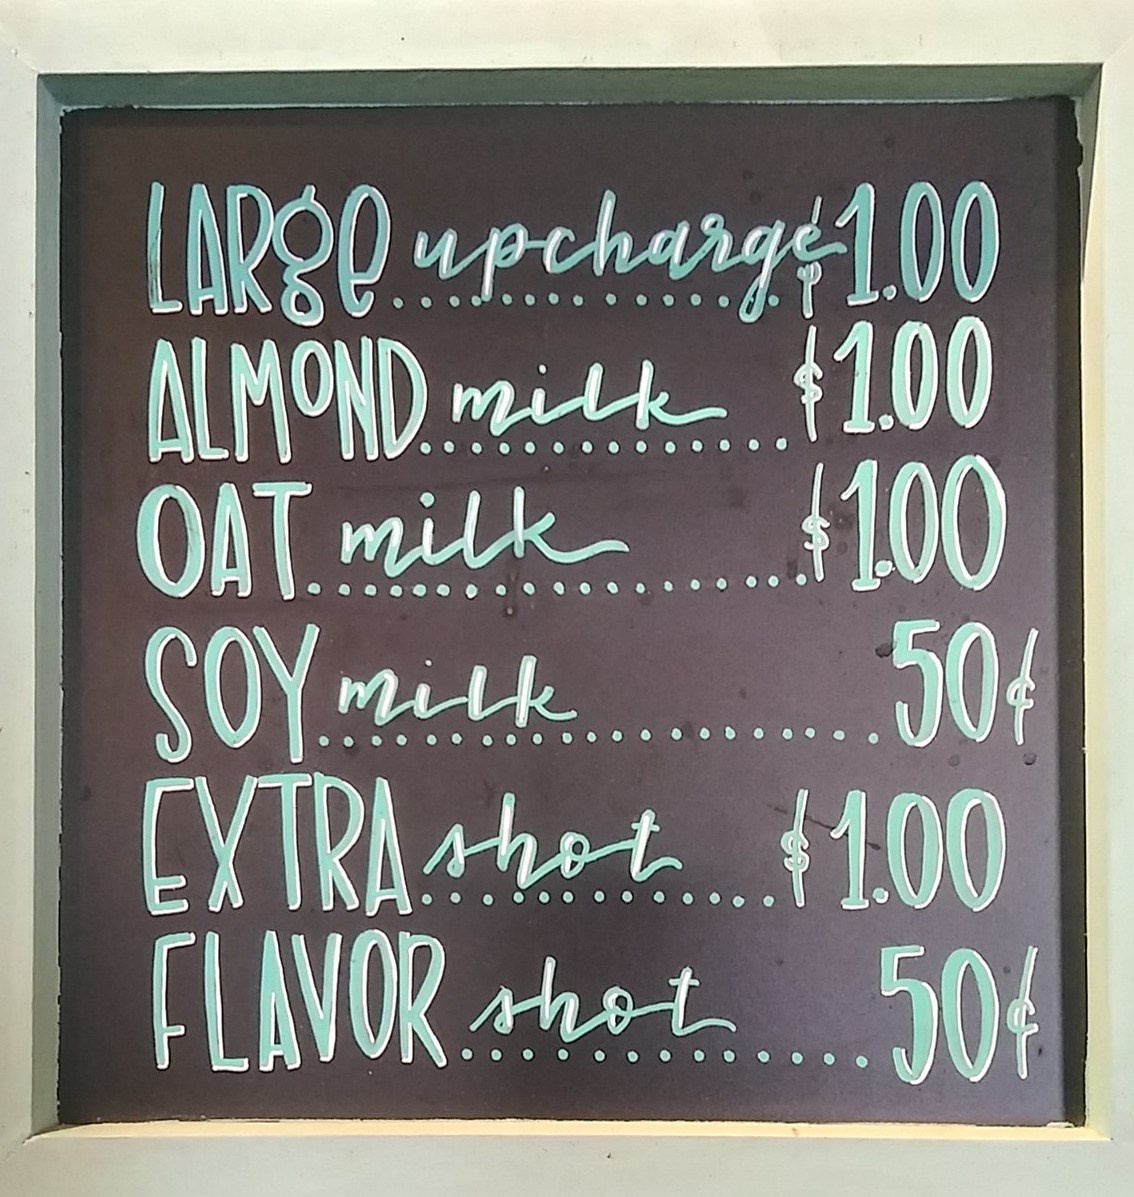 LARge upcharge $1.00
ALMOND milk $1.00
OAT milk $1.00
SOY milk 50¢
EXTRA shot $1.00
FLAVOR shot 50¢